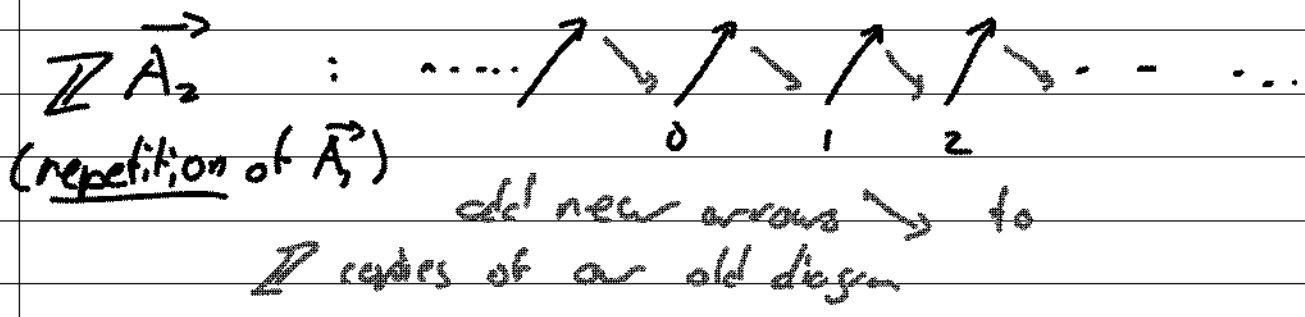 ℤ A⃗₂ : .....
0 1 2
(repetition of A⃗₂)
add new arrows ↘ to
ℤ copies of our old diagram